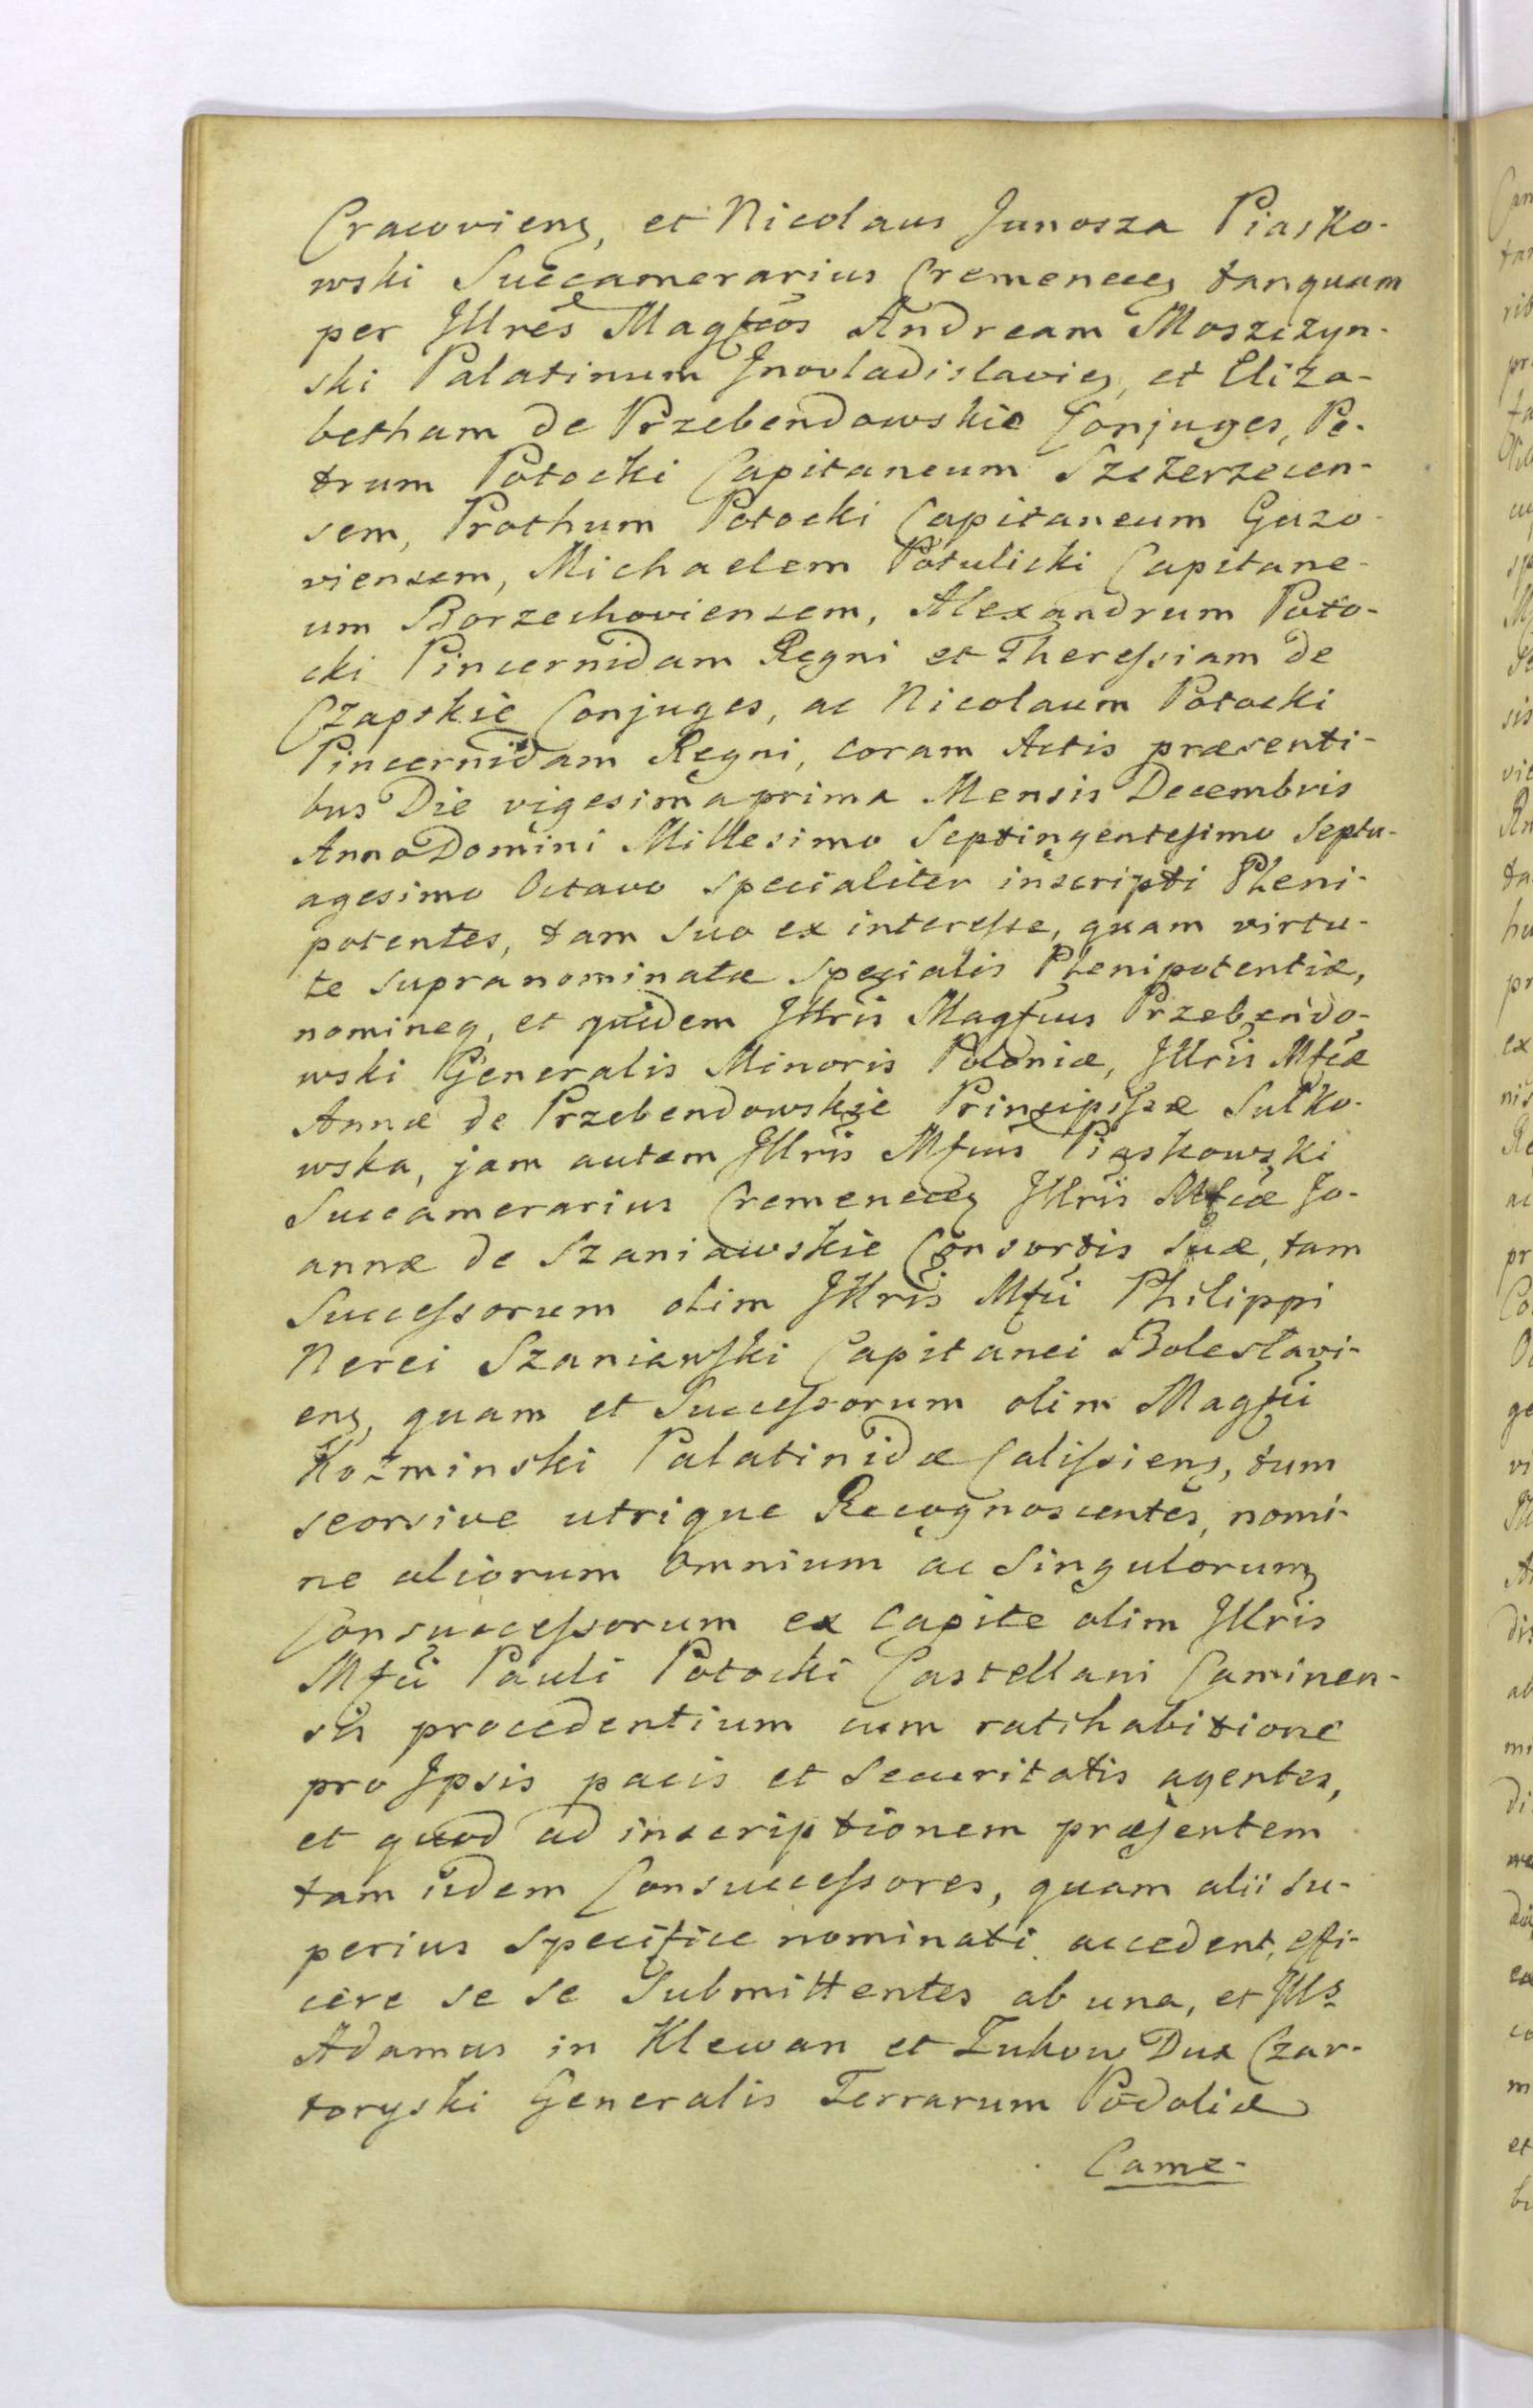 Cracovieng, et Nicolaus Junosza Piasko-
wski Succamerarius Cremeneceg tanquam
per Illres Magfcos Andream Moszczyn-
ski Palatinum Inovladislavieg, et Eliza-
betham de Przebendowskie Conjuges, Pe-
trum Potocki Capitaneum Szczerzecen-
sem, Prothum Potocki Capitaneum Guzo-
viensem, Michaelem Potulicki Capitane-
um Borzechoviensem, Alexandrum Poto-
cki Pincernidam Regni et Theressiam de
Czapskie Conjuges, ac Nicolaum Potocki
Pincernidam Regni, coram Actis præsenti-
bus Die vigesima prima Mensis Decembris
Anno Domini Millesimo Septingentesimo Septu-
agesimo Octavo specialiter inscripti Pleni-
potentes, tam suo ex interesse, quam virtu-
te supranominatæ specialis Plenipotentiæ,
nomineq, et quidem Illris Magfcus Przebendo-
wski Generalis Minoris Poloniæ, Illris Mfcæ
Annæ de Przebendowskie Principissæ Sułko-
wska, jam autem Illris Mfcus Piaskowski
Succamerarius Cremeneceg Illris Mfcæ Jo-
annæ de Szaniawskie Consortis suæ, tam
Successorum olim Illris Mfci Philippi
Nerei Szaniawski Capitanei Bolesłavi-
eng, quam et Successorum olim Magfci
Koźminski Palatinidæ Calissieng, tum
seorsive utrique Recognoscentes, nomi-
ne aliorum omnium ac Singulorum
Consuccessorum ex Capite olim Illris
Mfci Pauli Potocki Castellani Caminen-
sis procedentium cum ratihabitione
pro Ipsis pacis et Securitatis agentes,
et quod ad inscriptionem præsentem
tam iidem Consuccessores, quam alii su-
perius specifice nominati accedent, effi-
cere se se Submittentes ab una, et Ills
Adamus in Klewan et Zukow Dux Czar-
toryski Generalis Terrarum Podoliæ
Came-